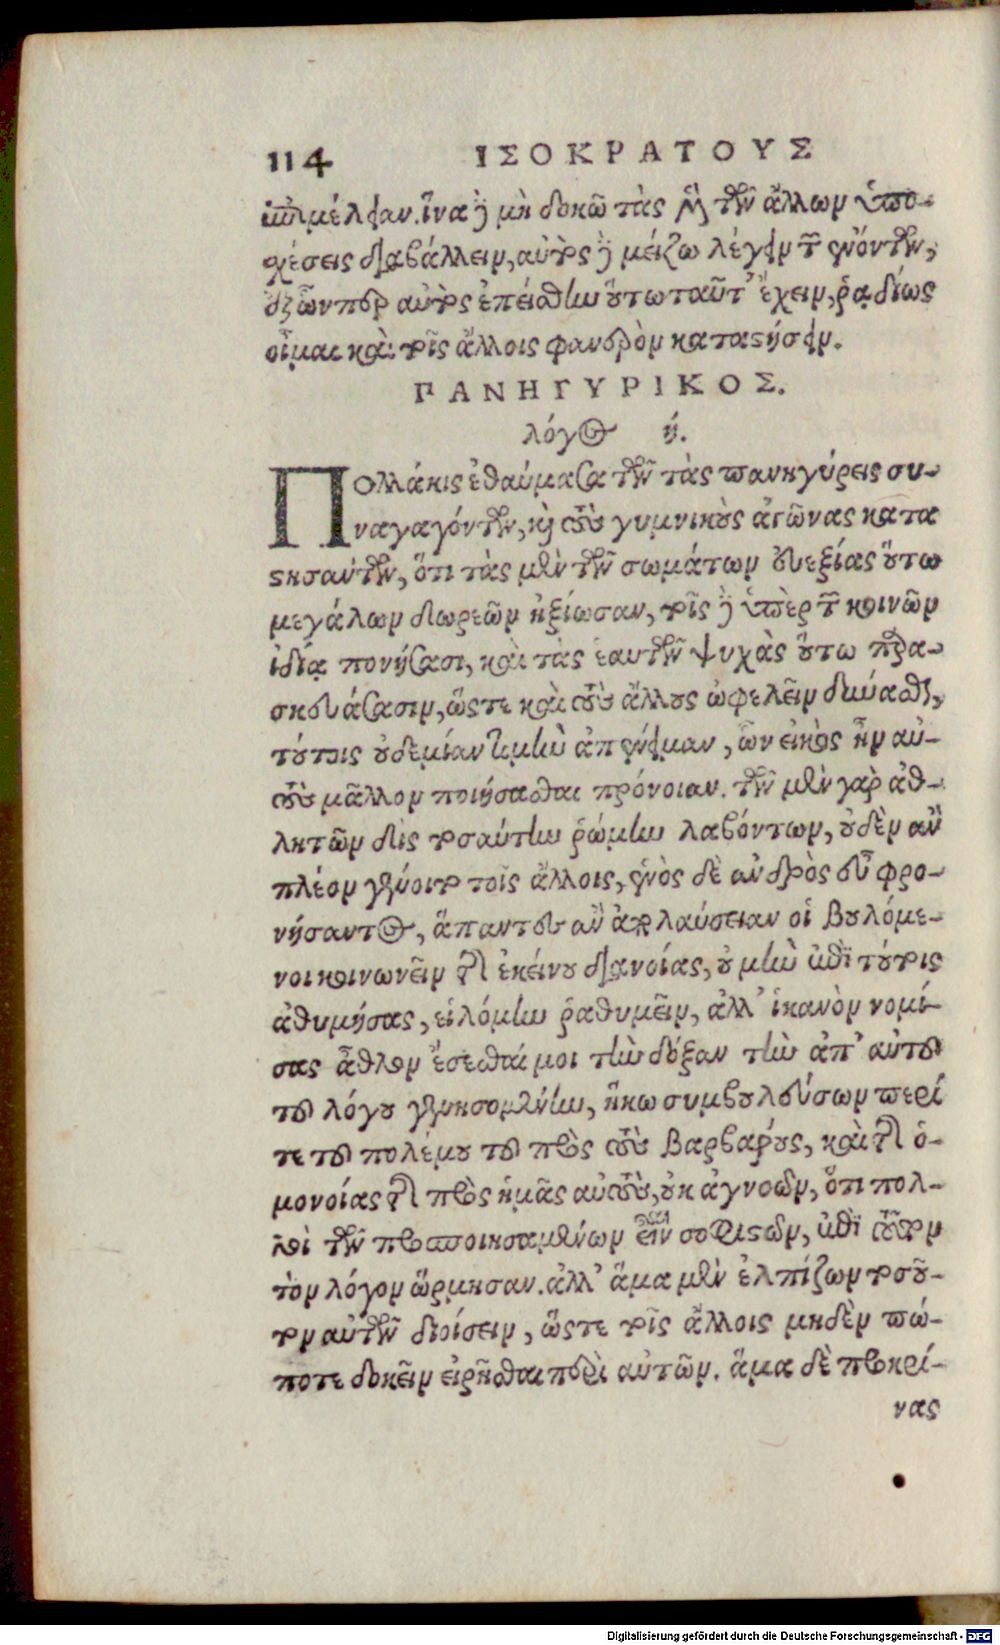 114 ΙΣΟΚΡΑΤΟΥΣ
ἐπιμέλειαν. ἵνα δὲ μὴ δοκῶ τὰς μὲν τῶν ἄλλων ὑπο-
χέσεις διαβάλλειν, αὐτὸς δὲ μείζω λέγειν τῶν ἐνόντων,
ἐξ ὧνπερ αὐτὸς ἐπείσθην οὕτω ταῦτ' ἔχειν, ῥᾳδίως
οἶμαι καὶ τοῖς ἄλλοις φανερὸν καταστήσειν.
ΠΑΝΗΓΥΡΙΚΟΣ.
λόγος ή.
Πολλάκις ἐθαύμασα τῶν τὰς πανηγύρεις συ-
ναγαγόντων, καὶ τοὺς γυμνικοὺς ἀγῶνας κατα
στησάντων, ὅτι τὰς μὲν τῶν σωμάτων εὐεξίας οὕτω
μεγάλων δωρεῶν ἠξίωσαν, τοῖς δὲ ὑπὲρ τῶν κοινῶν
ἰδίᾳ πονήσασι, καὶ τὰς ἑαυτῶν ψυχὰς οὕτω παρα-
σκευάσασιν, ὥστε καὶ τοὺς ἄλλους ὠφελεῖν δύνασθαι,
τούτοις οὐδεμίαν τιμὴν ἀπένειμαν, ὧν εἰκὸς ἦν αὐ-
τοὺς μᾶλλον ποιήσασθαι πρόνοιαν. τῶν μὲν γὰρ ἀθ-
λητῶν δὶς τοσαύτην ῥώμην λαβόντων, οὐδὲν ἂν
πλέον γένοιτο τοῖς ἄλλοις, ἑνὸς δὲ ἀνδρὸς εὖ φρο-
νήσαντος, ἅπαντες ἂν ἀπολαύσειαν οἱ βουλόμε-
νοι κοινωνεῖν τῆς ἐκείνου διανοίας, οὐ μὴν ἐπὶ τούτοις
ἀθυμήσας, εἱλόμην ῥαθυμεῖν, ἀλλ' ἱκανὸν νομί-
σας ἆθλον ἔσεσθαί μοι τὴν δόξαν τὴν ἀπ' αὐτοῦ
τοῦ λόγου γενησομένην, ἥκω συμβουλεύσων περί
τε τοῦ πολέμου τοῦ πρὸς τοὺς βαρβάρους, καὶ τῆς ὁ-
μονοίας τῆς πρὸς ἡμᾶς αὐτούς, οὐκ ἀγνοῶν, ὅτι πολ-
λοὶ τῶν προσποιησαμένων εἶναι σοφιστῶν, ἐπὶ τοῦτον
τὸν λόγον ὥρμησαν. ἀλλ' ἅμα μὲν ἐλπίζων τοσοῦ-
τον αὐτῶν διοίσειν, ὥστε τοῖς ἄλλοις μηδὲν πώ-
ποτε δοκεῖν εἰρῆσθαι περὶ αὐτῶν. ἅμα δὲ προκρί-
νας
Digitalisierung gefördert durch die Deutsche Forschungsgemeinschaft - DFG